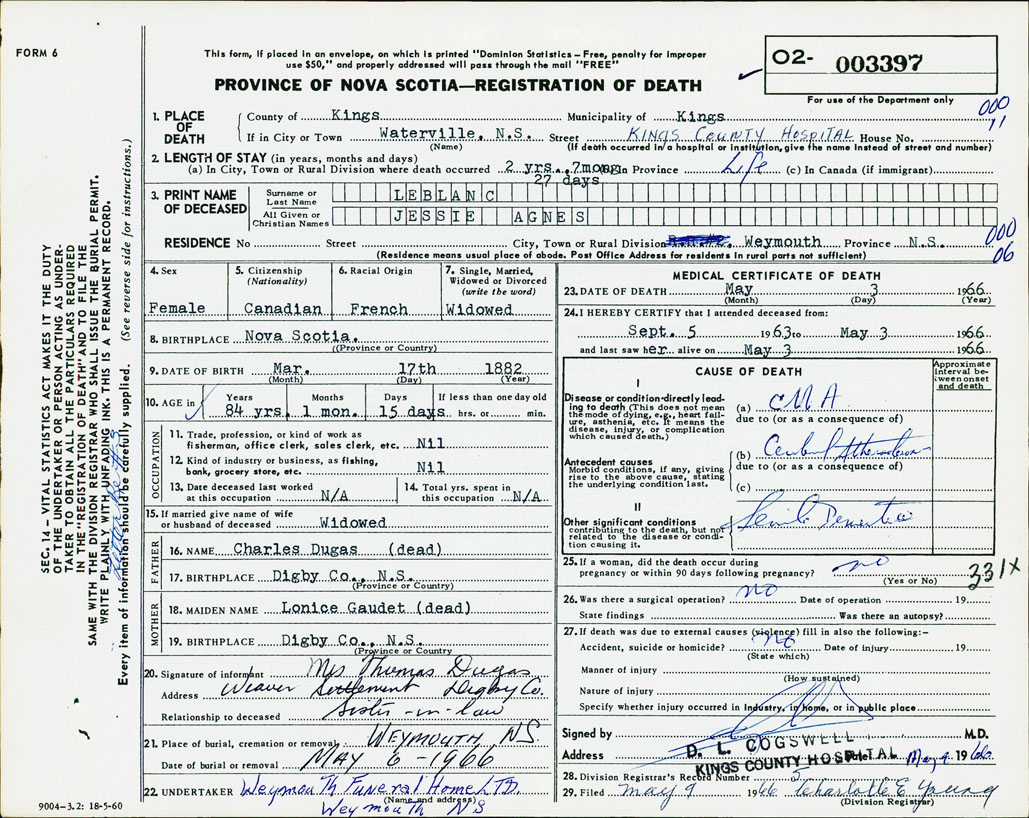 FORM 6
This form, if placed in an envelope, on which is printed "Dominion Statistics – Free, penalty for improper
use $50," and properly addressed will pass through the mail "FREE"
PROVINCE OF NOVA SCOTIA—REGISTRATION OF DEATH
02- 003397
For use of the Department only
000
11
1. PLACE OF DEATH
County of Kings Municipality of Kings
If in City or Town Waterville, N.S. Street KINGS COUNTY HOSPITAL House No.
(Name) (If death occurred in a hospital or institution, give the name instead of street and number)
2. LENGTH OF STAY (in years, months and days)
(a) In City, Town or Rural Division where death occurred 2 yrs. 7mong In Province Life (c) In Canada (if immigrant)
27 days
3. PRINT NAME OF DECEASED
Surname or Last Name LEBLANC
All Given or Christian Names JESSIE AGNES
RESIDENCE No Street City, Town or Rural Division Weymouth Province N.S.
(Residence means usual place of abode. Post Office Address for residents in rural parts not sufficient)
000
06
4. Sex
Female
5. Citizenship
(Nationality)
Canadian
6. Racial Origin
French
7. Single, Married,
Widowed or Divorced
(write the word)
Widowed
8. BIRTHPLACE Nova Scotia.
((Province or Country)
9. DATE OF BIRTH Mar. 17th 1882
(Month) (Day) (Year)
10. AGE in
Years Months Days If less than one day old
84 yrs. 1 mon. 15 days hrs. or min.
OCCUPATION
11. Trade, profession, or kind of work as
fisherman, office clerk, sales clerk, etc. Nil
12. Kind of industry or business, as fishing,
bank, grocery store, etc. Nil
13. Date deceased last worked
at this occupation N/A
14. Total yrs. spent in
this occupation N/A
15. If married give name of wife
or husband of deceased Widowed
FATHER
16. NAME Charles Dugas (dead)
17. BIRTHPLACE Digby Co., N.S.
(Province or Country)
MOTHER
18. MAIDEN NAME Lonice Gaudet (dead)
19. BIRTHPLACE Digby Co., N.S.
(Province or Country
20. Signature of informant Mrs Thomas Dugas
Address Weaver Settlement Digby Co.
Relationship to deceased Sister-in-law
21. Place of burial, cremation or removal WEYMOUTH, NS
Date of burial or removal MAY 6-1966
22. UNDERTAKER Weymouth Funeral Home LTD.
(Name and address)
Weymouth NS
MEDICAL CERTIFICATE OF DEATH
23. DATE OF DEATH May 3 1966
(Month) (Day) (Year)
24. I HEREBY CERTIFY that I attended deceased from:
Sept. 5 1963 to May 3 1966
and last saw her alive on May 3 1966
CAUSE OF DEATH
Approximate
interval be-
tween onset
and death
I
Disease or condition directly lead-
ing to death (This does not mean
the mode of dying, e.g., heart fail-
ure, asthenia, etc. It means the
disease, injury, or complication
which caused death.)
(a) CVA
due to (or as a consequence of)
Antecedent causes
Morbid conditions, if any, giving
rise to the above cause, stating
the underlying condition last.
(b) Cerebral
due to (or as a consequence of)
(c)
II
Other significant conditions
contributing to the death, but not
related to the disease or condi-
tion causing it.
Senile Dementia
25. If a woman, did the death occur during
pregnancy or within 90 days following pregnancy? no
(Yes or No)
331X
26. Was there a surgical operation? no Date of operation 19
State findings Was there an autopsy?
27. If death was due to external causes (violence) fill in also the following:–
Accident, suicide or homicide? no Date of injury 19
(State which)
Manner of injury
(How sustained)
Nature of injury
Specify whether injury occurred in Industry, in home, or in public place
Signed by M.D.
D. L. COGSWELL
Address KINGS COUNTY HOSPITAL Date May 9 1966
28. Division Registrar's Record Number 5
29. Filed May 9 1966 Charlotte E Young
(Division Registrar)
SEC. 14 – VITAL STATISTICS ACT MAKES IT THE DUTY
OF THE UNDERTAKER OR PERSON ACTING AS UNDER-
TAKER TO OBTAIN ALL THE PARTICULARS REQUIRED
IN THE "REGISTRATION OF DEATH" AND TO FILE THE
SAME WITH THE DIVISION REGISTRAR WHO SHALL ISSUE THE BURIAL PERMIT.
WRITE PLAINLY WITH UNFADING INK. THIS IS A PERMANENT RECORD.
Every item of information should be carefully supplied. (See reverse side for instructions.)
9004-3.2: 18-5-60